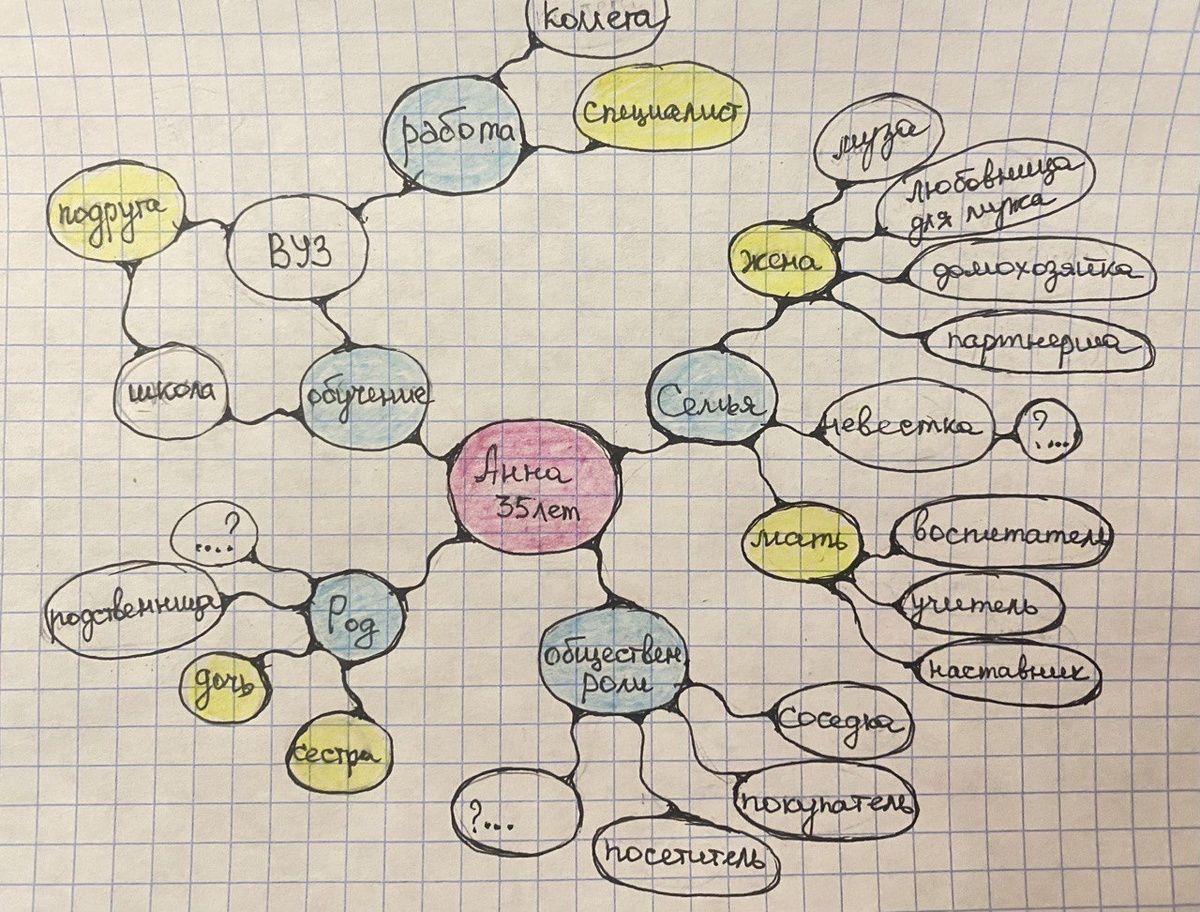 комета
специалист
работа
муза
любовница
для мужа
подруга
ВУЗ
жена
домохозяйка
партнерша
школа
обучение
Семья
невестка
?...
Анна
35лет
мать
воспитатель
учитель
наставник
....?
родственница
Род
дочь
сестра
обществен
роли
соседка
покупатель
?...
посетитель